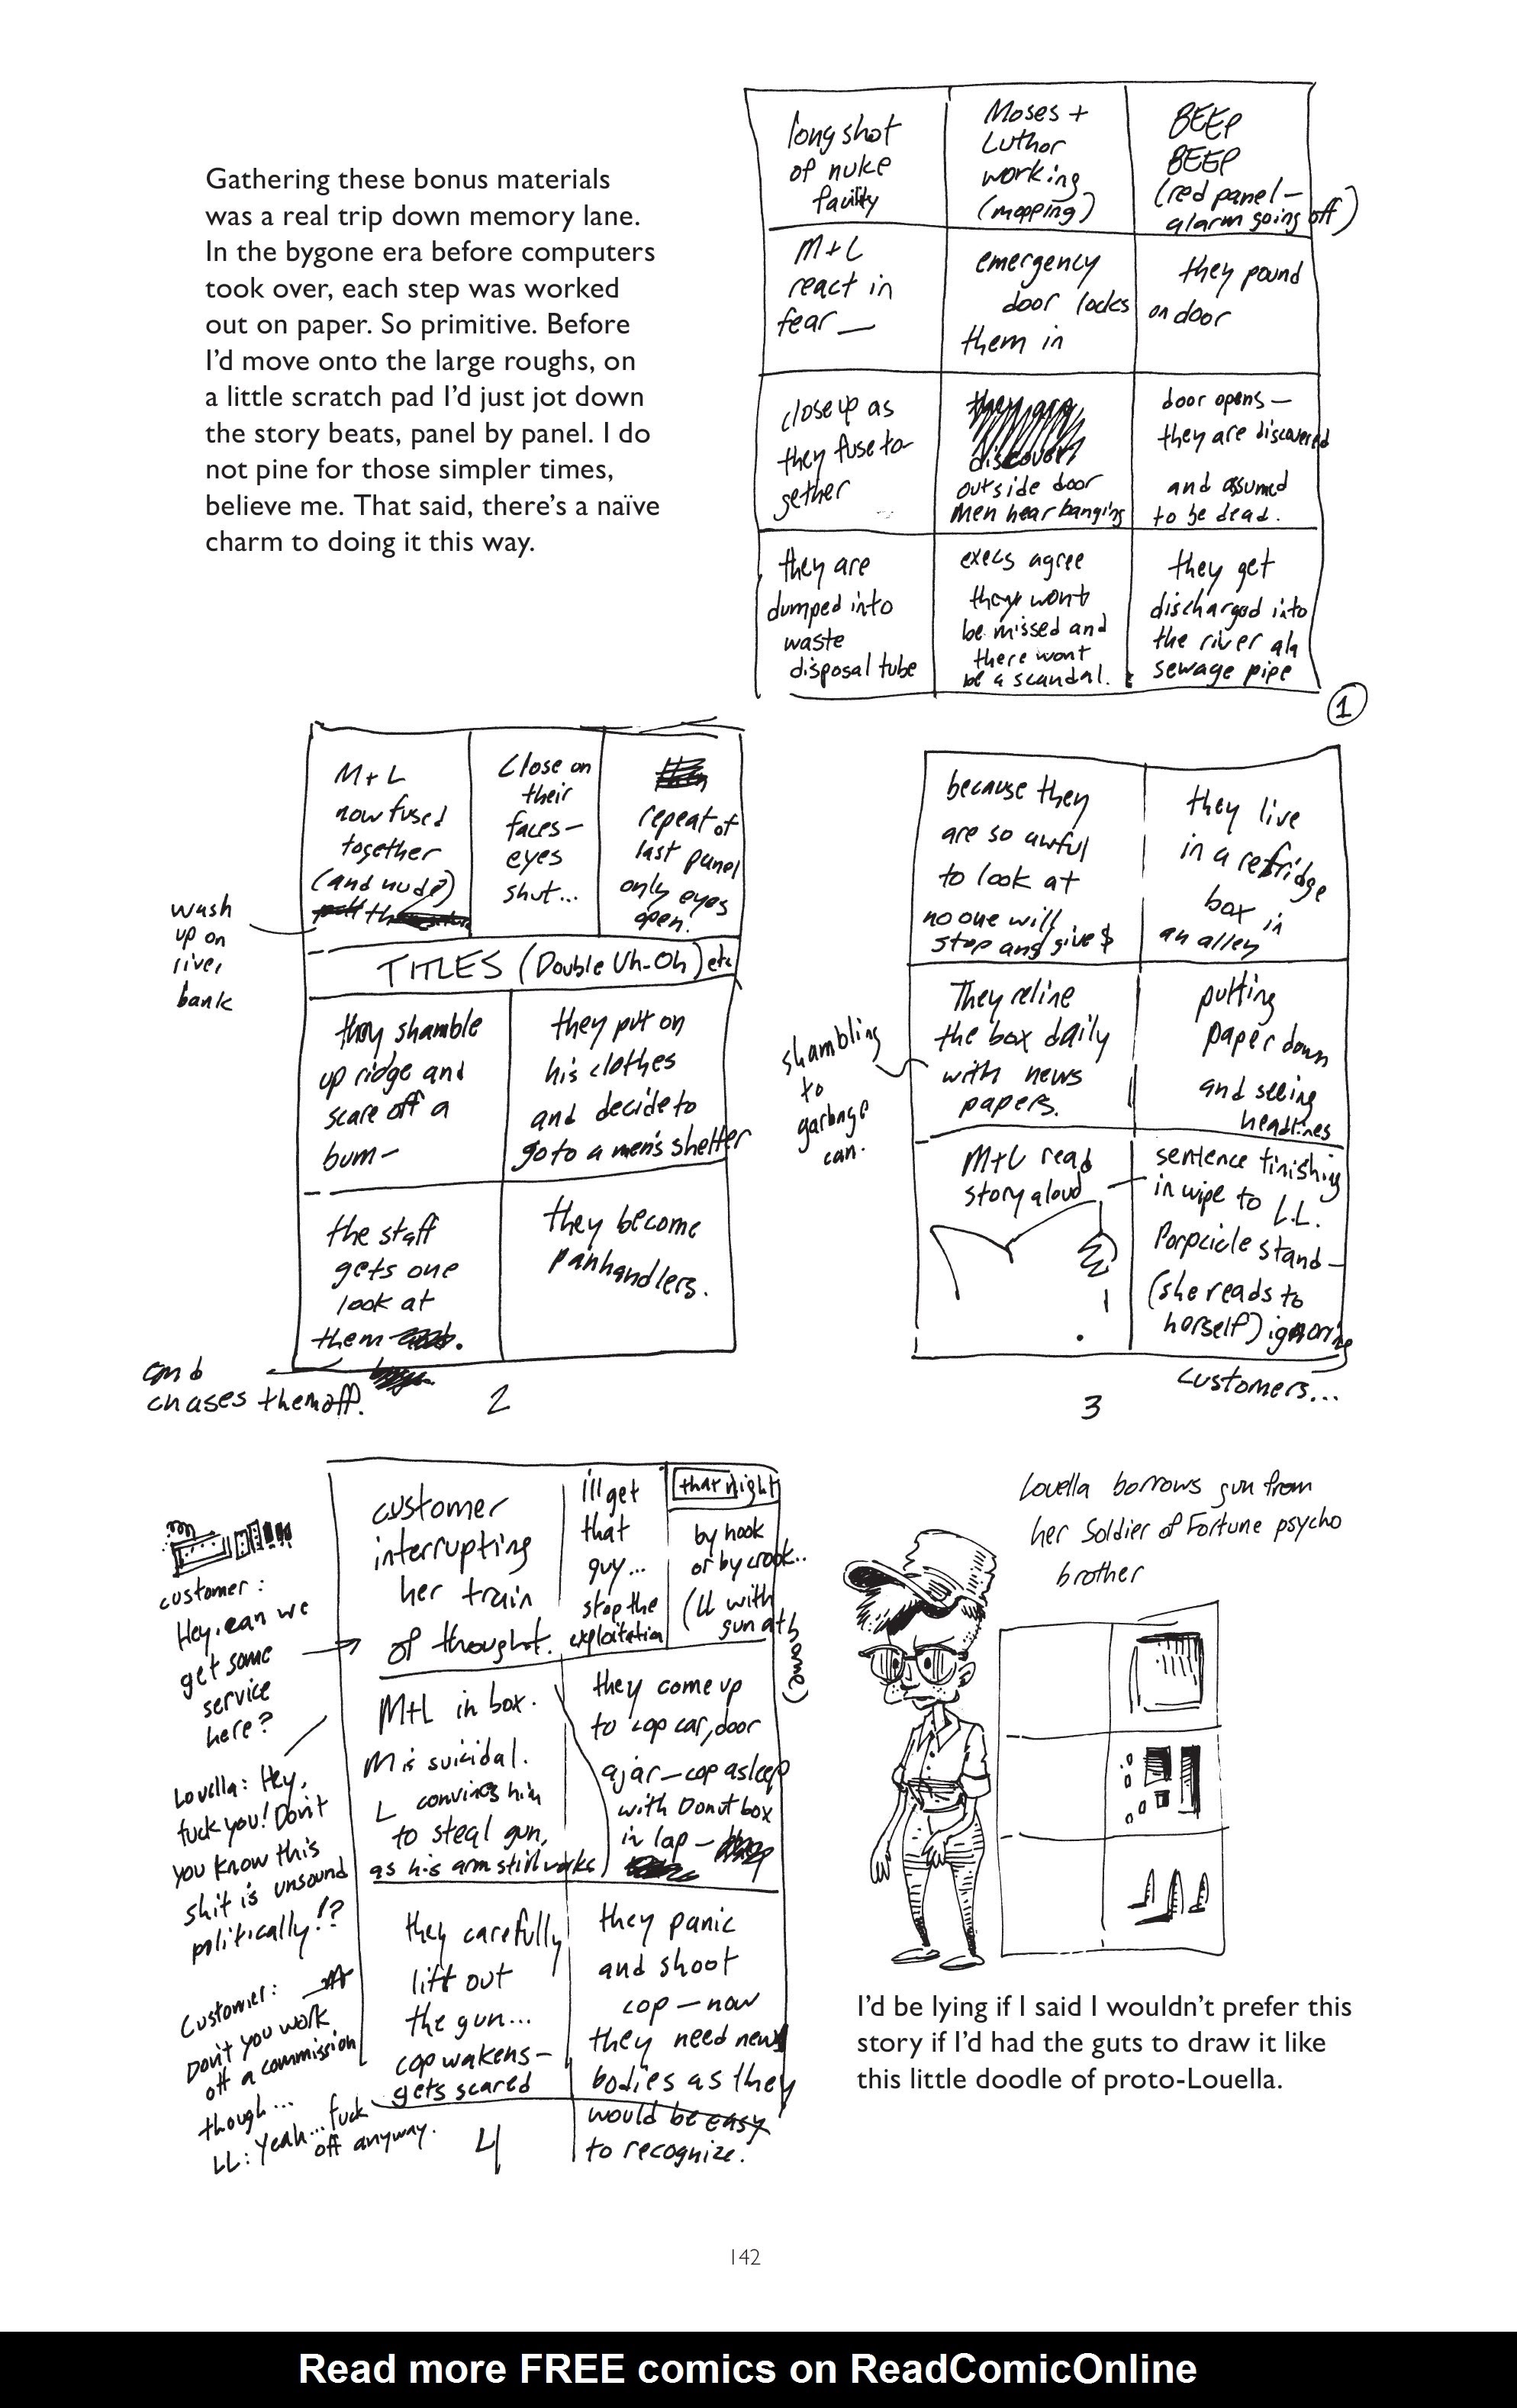 Gathering these bonus materials
was a real trip down memory lane.
In the bygone era before computers
took over, each step was worked
out on paper. So primitive. Before
I'd move onto the large roughs, on
a little scratch pad I'd just jot down
the story beats, panel by panel. I do
not pine for those simpler times,
believe me. That said, there's a naïve
charm to doing it this way.
long shot
of nuke
facility
Moses +
Luthor
working
(mopping)
BEEP
BEEP
(red panel—
alarm going off)
M+L
react in
fear—
emergency
door locks
them in
they pound
on door
close up as
they fuse to-
gether
they are
discover
outside door
men hear banging
door opens—
they are discovered
and assumed
to be dead.
they are
dumped into
waste
disposal tube
execs agree
they wont
be missed and
there wont
be a scandal.
they get
discharged into
the river ala
sewage pipe
1
M+L
now fused
together
(and nude)
wash
up on
river
bank
Close on
their
faces—
eyes
shut...
repeat of
last panel
only eyes
open!
TITLES (Double Uh-Oh) etc
they shamble
up ridge and
scare off a
bum—
they put on
his clothes
and decide to
go to a men's shelter
the staff
gets one
look at
them
and
chases them off.
they become
panhandlers.
2
because they
are so awful
to look at
no one will
stop and give $
they live
in a refridge
box in
an alley
They reline
the box daily
with news
papers.
shambling
to
garbage
can.
putting
paper down
and seeing
headlines
M+L read
story aloud
sentence finishing
in wipe to L.L.
Porpcicle stand—
(she reads to
herself) ignoring
customers...
3
customer
interrupting
her train
of thought.
i'll get
that
guy...
stop the
exploitation
that night
by hook
or by crook..
(LL with
gun at home)
customer:
Hey, can we
get some
service
here?
Louella: Hey,
fuck you! Don't
you know this
shit is unsound
politically!?
Customer:
Don't you work
off a commission
though...
LL: Yeah... fuck
off anyway.
M+L in box.
M is suicidal.
L convinces him
to steal gun,
as his arm still works
they come up
to cop car, door
ajar—cop asleep
with Donut box
in lap—
they carefully
lift out
the gun...
cop wakens—
gets scared
they panic
and shoot
cop—now
they need new
bodies as they
would be easy
to recognize.
4
Louella borrows gun from
her Soldier of Fortune psycho
brother
I'd be lying if I said I wouldn't prefer this
story if I'd had the guts to draw it like
this little doodle of proto-Louella.
142
Read more FREE comics on ReadComicOnline